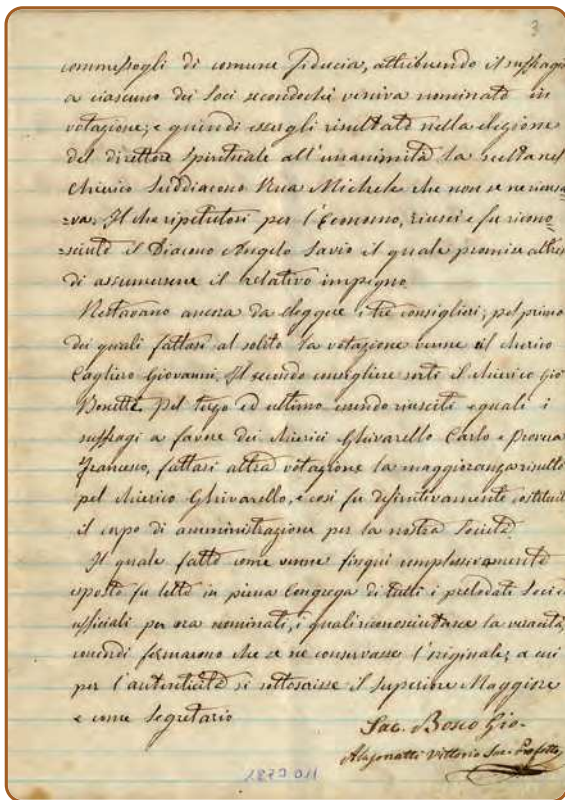 3
commessogli di comune fiducia, attribuendo il suffragio
a ciascuno dei Soci secondochè veniva nominato in
votazione; e quindi essergli risultato nella elezione
del direttore Spirituale all'unanimità la scelta nel
Chierico Suddiacono Rua Michele che non se ne ricusa=
=va. Il che ripetutosi per l'Economo, riuscì e fu ricono=
=sciuto il Diacono Angelo Savio il quale promise altresì
di assumersene il relativo impegno.
Restavano ancora da eleggere i tre consiglieri; pel primo
dei quali fattasi al solito la votazione venne il chierico
Cagliero Giovanni. Il secondo consigliere sortì il chierico Gio
Bonetti. Pel terzo ed ultimo essendo riusciti eguali i
suffragi a favore dei chierici Ghivarello Carlo e Provera
Francesco, fattasi altra votazione la maggioranza risultò
pel chierico Ghivarello, e così fu definitivamente costituito
il corpo di amministrazione per la nostra Società.
Il quale fatto come venne finqui complessivamente
esposto fu letto in piena Congrega di tutti i prelodati Soci e
ufficiali per ora nominati, i quali riconosciutane la veracità,
concordi fermarono che se ne conservasse l'originale; a cui
per l'autenticità si sottoscrisse il Superiore Maggiore
e come Segretario
Sac. Bosco Gio.
Alasonatti Vittorio Sac. Prefetto